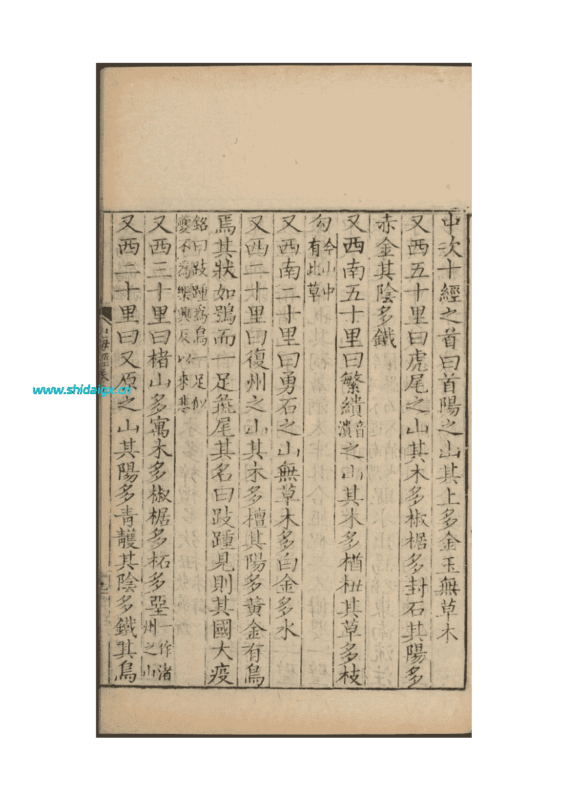 中次十經之首曰首陽之山其上多金玉無草木
又西五十里曰虎尾之山其木多椒椐多封石其陽多
赤金其陰多鐵
又西南五十里曰繁繢音潰之山其木多楢杻其草多枝
勾今山中有此草
又西南二十里曰勇石之山無草木多白金多水
又西二十里曰復州之山其木多檀其陽多黃金有鳥
焉其狀如鴞而一足彘尾其名曰跂踵見則其國大疫
銘曰跂踵爲鳥一足似夔不爲樂興反以來悲
又西三十里曰楮山多寓木多椒椐多柘多堊一作渚州之山
又西二十里曰又原之山其陽多青䨼其陰多鐵其鳥
www.shidaigx.cn